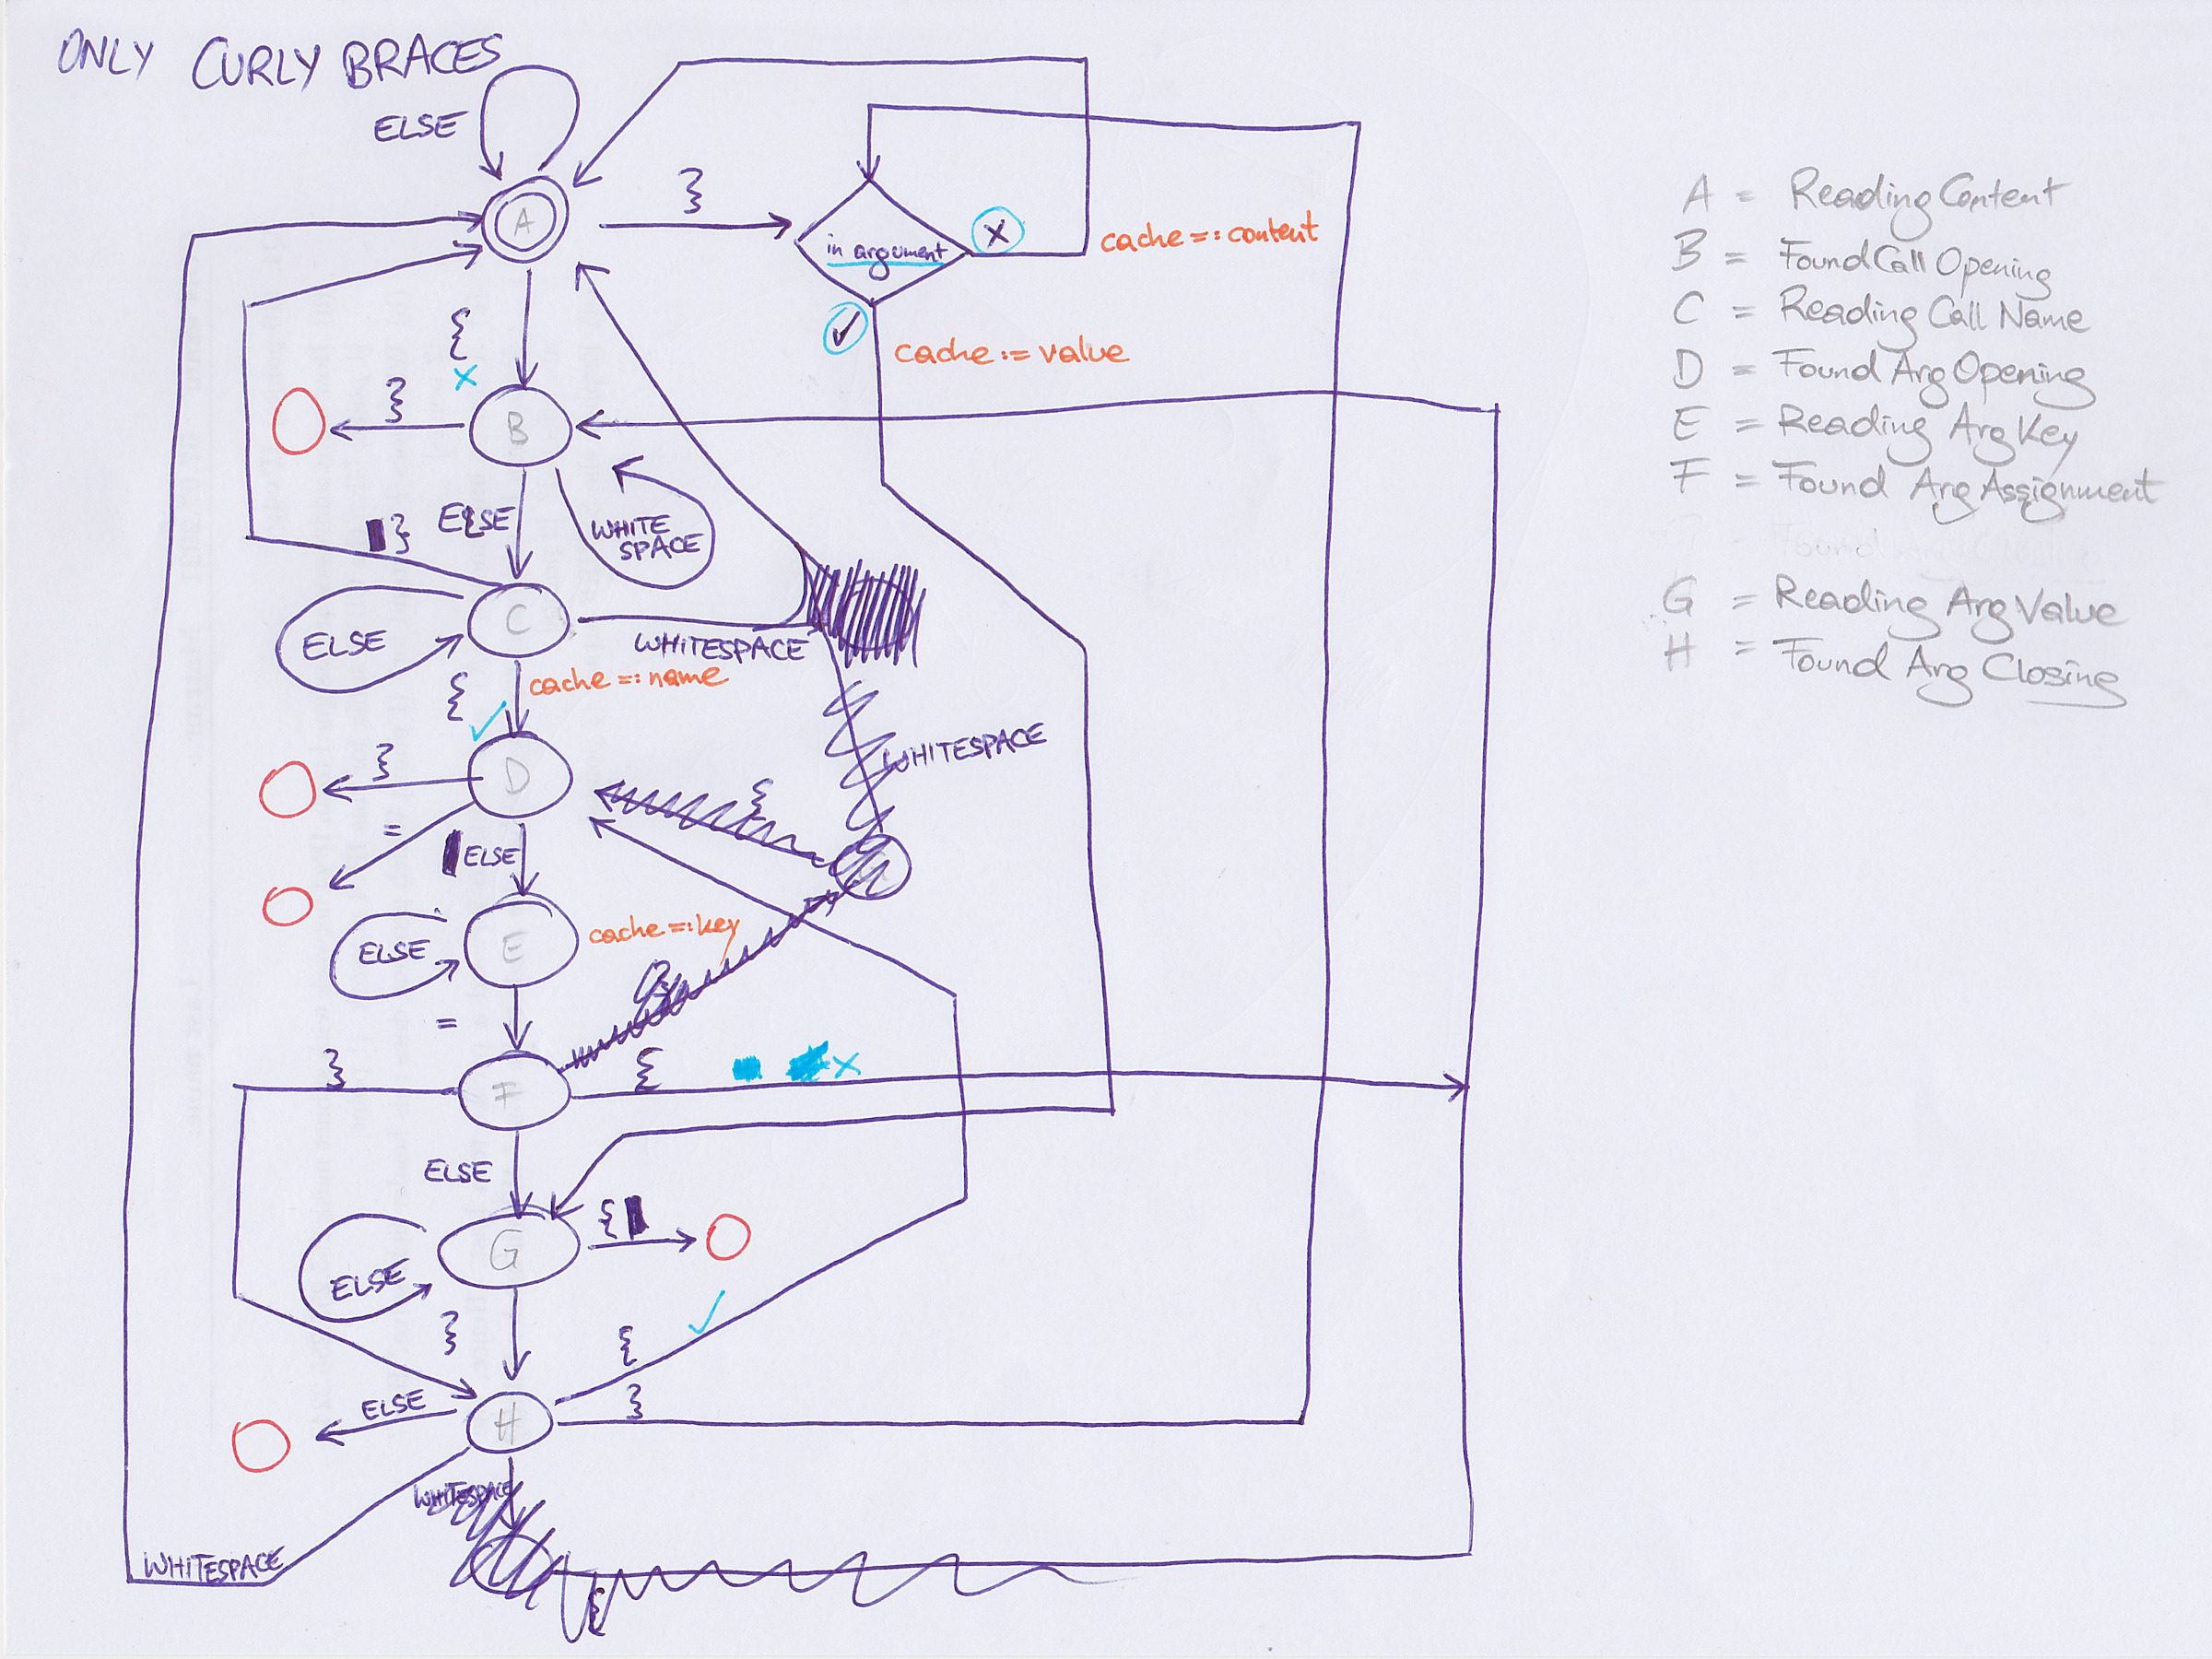 ONLY CURLY BRACES
ELSE
A
}
in argument
X
cache =: content
✓
cache := value
{
X
}
B
ELSE
WHITE
SPACE
}
C
ELSE
WHITESPACE
cache =: name
{
✓
}
D
=
ELSE
{
WHITESPACE
E
ELSE
cache =: key
=
}
F
{
X
ELSE
G
{
ELSE
}
{
✓
ELSE
H
}
WHITESPACE
WHITESPACE
{
A = Reading Content
B = Found Call Opening
C = Reading Call Name
D = Found Arg Opening
E = Reading Arg Key
F = Found Arg Assignment
G = Reading Arg Value
H = Found Arg Closing